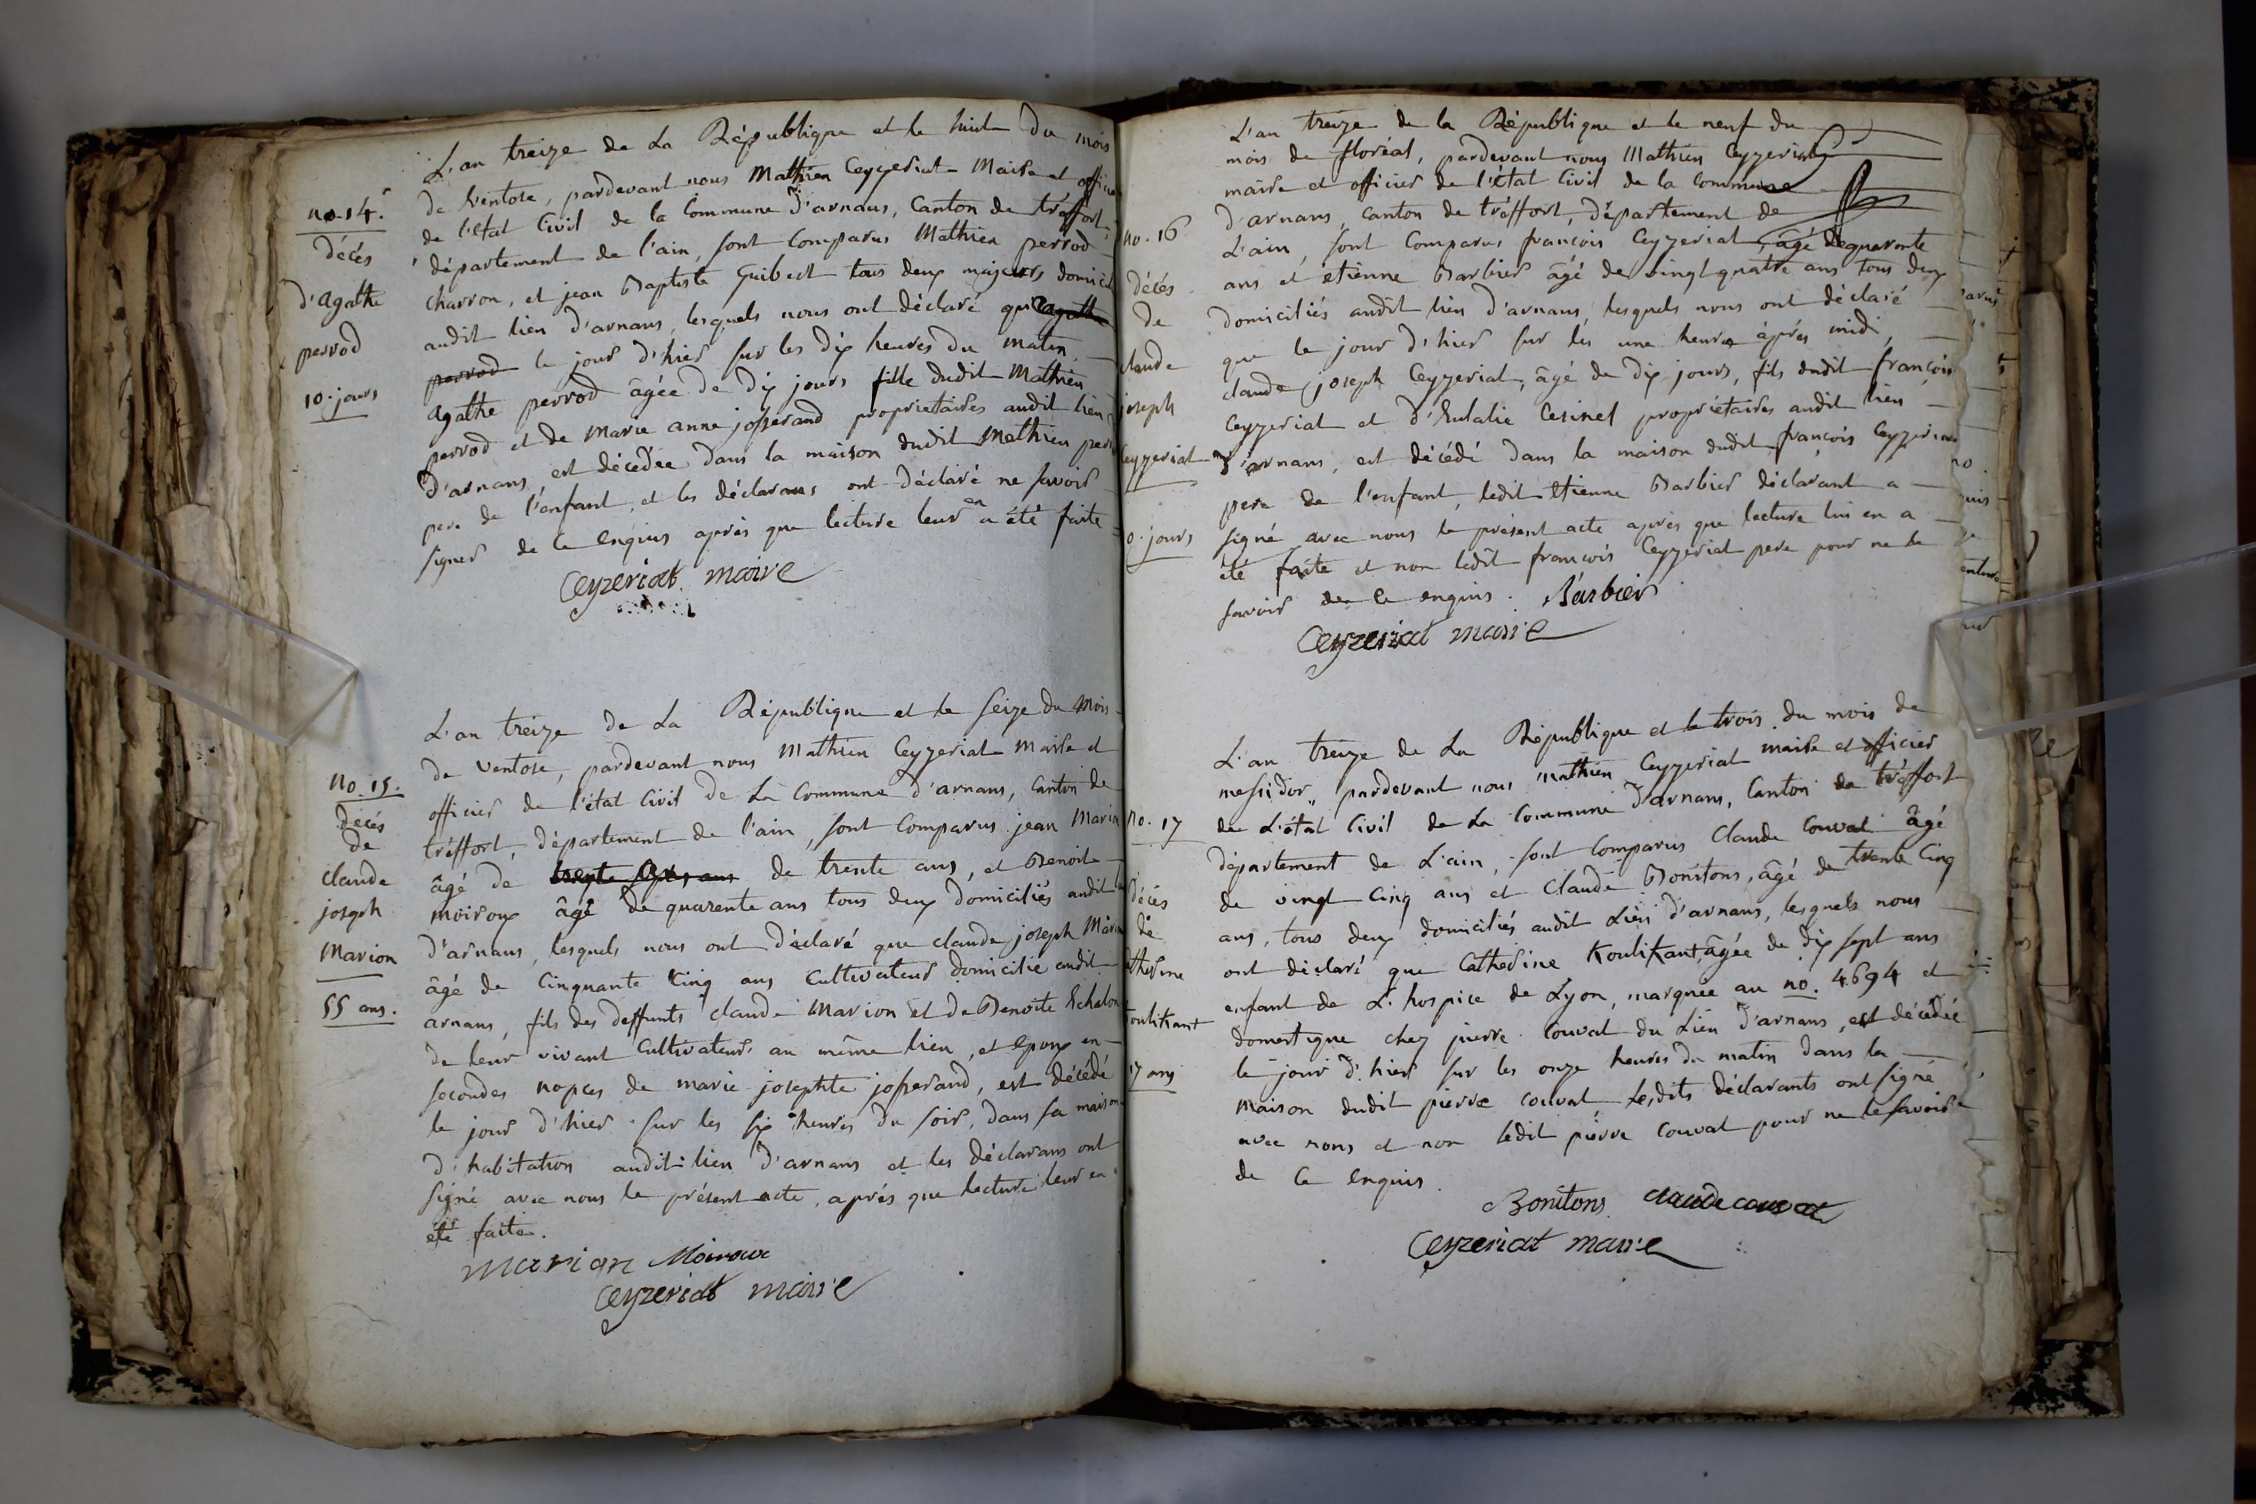 no. 14.
décés
d'agathe
perrod
10. jours
L'an treize de La République et le huit du mois
de Ventose, pardevant nous Mathieu Ceyzeriat Maire et officier
de l'état Civil de la Commune d'arnans, Canton de tréffort,
département de l'ain, sont Comparus Mathieu perrod
charron, et jean Baptiste Guibert tous deux majeurs domicil
audit lieu d'arnans, lesquels nous ont déclaré que agathe
perrod le jour d'hier sur les dix heures du matin,
agathe perrod âgée de dix jours fille dudit Mathieu
perrod et de Marie anne josserand proprietaires audit lieu
d'arnans, est décédée dans la maison dudit Mathieu perr
pere de l'enfant, et les déclarans ont déclaré ne savoir
signer de ce enquis après que lecture leur en a été faite
Ceyzeriat maire
no. 15.
Decés
De
claude
joseph
Marion
55 ans.
L'an treize de La République et le seize du Mois
de Ventose, pardevant nous Mathieu Ceyzeriat Maire et
officier de l'état Civil de La Commune d'arnans, Canton de
tréffort, département de l'ain, sont Comparus jean Marion
âgé de trente ans de trente ans, et Benoit
moiroux âgé de quarente ans tous deux domiciliés audit
d'arnans, lesquels nous ont déclaré que claude joseph Marion
âgé de Cinquante Cinq ans Cultivateur domicilié audit
arnans, fils des deffunts claude Marion et de Benoite Echalon
de leur vivant Cultivateurs au même lieu, et Epoux en
secondes nopces de marie josephte josserand, est décédé
le jour d'hier sur les six heures du soir, dans sa maison
d'habitation audit lieu d'arnans et les déclarans ont
signé avec nous le présent acte, après que lecture leur en a
été faite.
marion Moiroux
Ceyzeriat maire
no. 16
décés
de
claude
joseph
Ceyzeriat
0. jours
L'an treize de la République et le neuf du
mois de floréal, pardevant nous Mathieu Ceyzeriat
maire et officier de l'état Civil de la Commune
d'arnans, canton de tréffort, département de
L'ain, sont Comparus françois Ceyzeriat, âgé de quarente
ans et etienne Barbier âgé de vingt quatre ans tous deux
domiciliés audit lieu d'arnans, lesquels nous ont déclaré
que le jour d'hier sur les une heures après midi,
claude joseph Ceyzeriat, âgé de dix jours, fils dudit françois
Ceyzeriat et d'Eulalie Cerisel propriétaires audit lieu
d'arnans, est décédé dans la maison dudit françois Ceyzeriat
pere de l'enfant, ledit Etienne Barbier déclarant a
signé avec nous le présent acte après que lecture lui en a
été faite et non ledit francois Ceyzeriat pere pour ne le
savoir de ce enquis. Barbier
Ceyzeriat maire
no. 17
Décés
de
atherine
oulikant
17 ans
L'an treize de La République et le trois du mois de
messidor, pardevant nous Mathieu Ceyzeriat maire et officier
de L'état Civil de La Commune d'arnans, Canton de tréffort
département de L'ain, sont Comparus Claude Couvat âgé
de vingt Cinq ans et Claude Bonitons, âgé de trente Cinq
ans, tous deux domiciliés audit Lieu d'arnans, lesquels nous
ont déclaré que Catherine Koulikant, âgée de dix sept ans
enfant de L'hospice de Lyon, marquée au no. 4694 et
domestique chez pierre Couvat du Lieu d'arnans, est décédée
le jour d'hier sur les onze heures du matin dans la
maison dudit pierre Couvat lesdits déclarants ont signé
avec nous et non ledit pierre Couvat pour ne le savoir
de ce enquis.
Bonitons claude couvat
Ceyzeriat maire